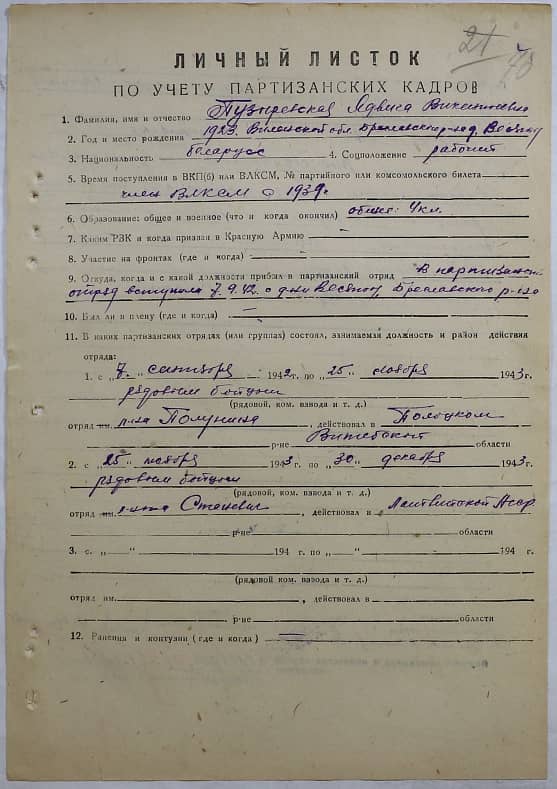 21
ЛИЧНЫЙ ЛИСТОК
ПО УЧЕТУ ПАРТИЗАНСКИХ КАДРОВ
1. Фамилия, имя и отчество Пузыревская Ядвига Викентьевна
2. Год и место рождения 1923, Виленской обл. Браславск р-на д.
3. Национальность беларусс 4. Соцположение рабочий
5. Время поступления в ВКП(б) или ВЛКСМ, № партийного или комсомольского билета
член ВЛКСМ с 1939 г
6. Образование: общее и военное (что и когда окончил) общее: 4 кл.
7. Каким РВК и когда призван в Красную Армию —
8. Участие на фронтах (где и когда) —
9. Откуда, когда и с какой должности прибыл в партизанский отряд В партизанск.
отряд вступила 7.9.42. с Браславского р-на
10. Был ли в плену (где и когда) —
11. В каких партизанских отрядах (или группах) состоял, занимаемая должность и район действия
отряда:
1. с „7„ сентября 1942 г. по „25" ноября 1943 г.
рядовым бойцом
(рядовой, ком. взвода и т. д.)
отряд им. Полунина, действовал в Полоцком
р-не Витебской области
2. с „25" ноября 1943 г. по „30" декабря 1943 г.
рядовым бойцом
(рядовой, ком. взвода и т. д.)
отряд им., действовал в
р-не области
3. с. „—" 194 г. по „—" 194 г.
(рядовой ком. взвода и т. д.)
отряд им., действовал в
р-не области
12. Ранения и контузии (где и когда) —